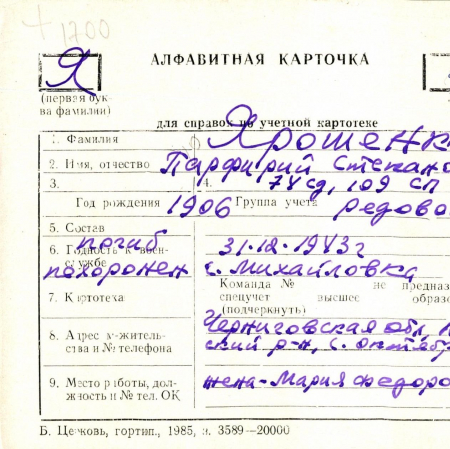 + 1700
АЛФАВИТНАЯ КАРТОЧКА
Я
(первая бук-
ва фамилии)
для справок по учетной картотеке
1. Фамилия Ярошенк
2. Имя, отчество Парфирий Степано
3. 4. 74 сд, 109 СП
Год рождения 1906 Группа учета редово
5. Состав
погиб
6. Годность к воен- 31.12.1943г
службе
похоронен с. Михайловка
7. Картотека Команда № не предназ
спецучет высшее образо
(подчеркнуть)
Черниговская обл,
8. Адрес жительст-
ва и № телефона ский р-н, с. октябр
9. Место работы, дол-
жность и № тел. ОК жена-Мария Федоро
Б. Церковь, гортип., 1985, з. 3589—20000